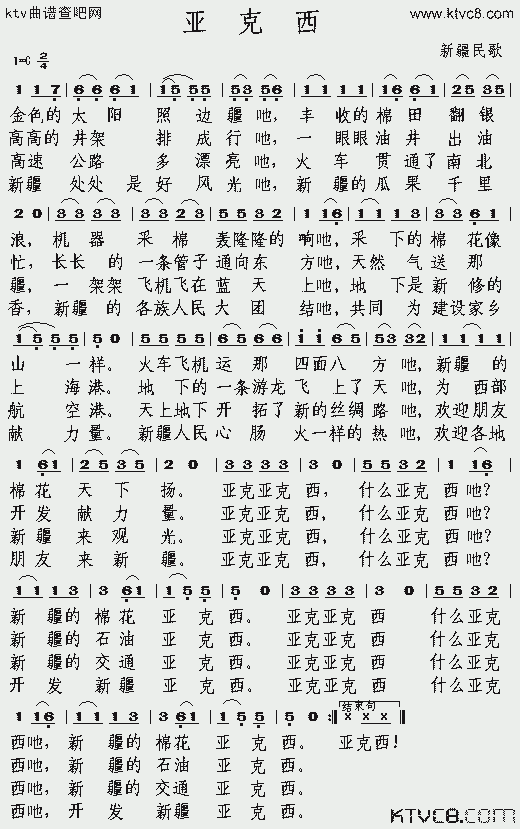 ktv曲谱查吧网
www.ktvc8.com
亚克西
新疆民歌
1=C 2/4
1 1 7 | 6 6 6 1 | 15 55 | 53 56 | 1 1 1 | 16 61 | 25 35 |
金色的 太阳 照边疆吔，丰收的棉田翻银
高高的井架 排成行吔，一眼眼油井出油
高速 公路 多漂亮吔，火车贯通了南北
新疆 处处是好风光吔，新疆的瓜果千里
2 0 | 3 3 3 3 | 33 23 | 5 5 5 5 | 1 16 | 1 1 1 3 | 33 61 |
浪，机器 采棉 轰隆隆的响吔，采下的棉花像
忙，长长的一条管子通向东方吔，天然气送那
疆，一架架飞机飞在蓝天上吔，地下是新修的
香，新疆的各族人民大团结吔，共同为建设家乡
1 5 5 5 | 5 0 | 5 5 5 5 | 6 5 6 6 | i i 65 | 53 32 | 1 1 1 1 |
山一样。火车飞机运那四面八方吔，新疆的
上海港。地下的一条游龙飞上了天吔，为西部
航空港。天上地下开拓了新的丝绸路吔，欢迎朋友
献力量。新疆人民心肠火一样的热吔，欢迎各地
1 61 | 25 35 | 2 0 | 33 33 | 3 0 | 55 32 | 1 16 |
棉花天下扬。亚克亚克西，什么亚克西吔？
开发献力量。亚克亚克西，什么亚克西吔？
新疆来观光。亚克亚克西，什么亚克西吔？
朋友来新疆。亚克亚克西，什么亚克西吔？
1 1 1 3 | 3 61 | 1 5 5 | 5 0 | 33 33 | 3 0 | 55 32 |
新疆的棉花亚克西。亚克亚克西 什么亚克
新疆的石油亚克西。亚克亚克西 什么亚克
新疆的交通亚克西。亚克亚克西 什么亚克
开发新疆亚克西。亚克亚克西 什么亚克
结束句
1 16 | 1 1 1 | 3 61 | 1 5 5 | 5 0 :‖ x x x ‖
西吔，新疆的棉花亚克西。亚克西！
西吔，新疆的石油亚克西。
西吔，新疆的交通亚克西。
西吔，开发新疆亚克西。
KTVC8.com